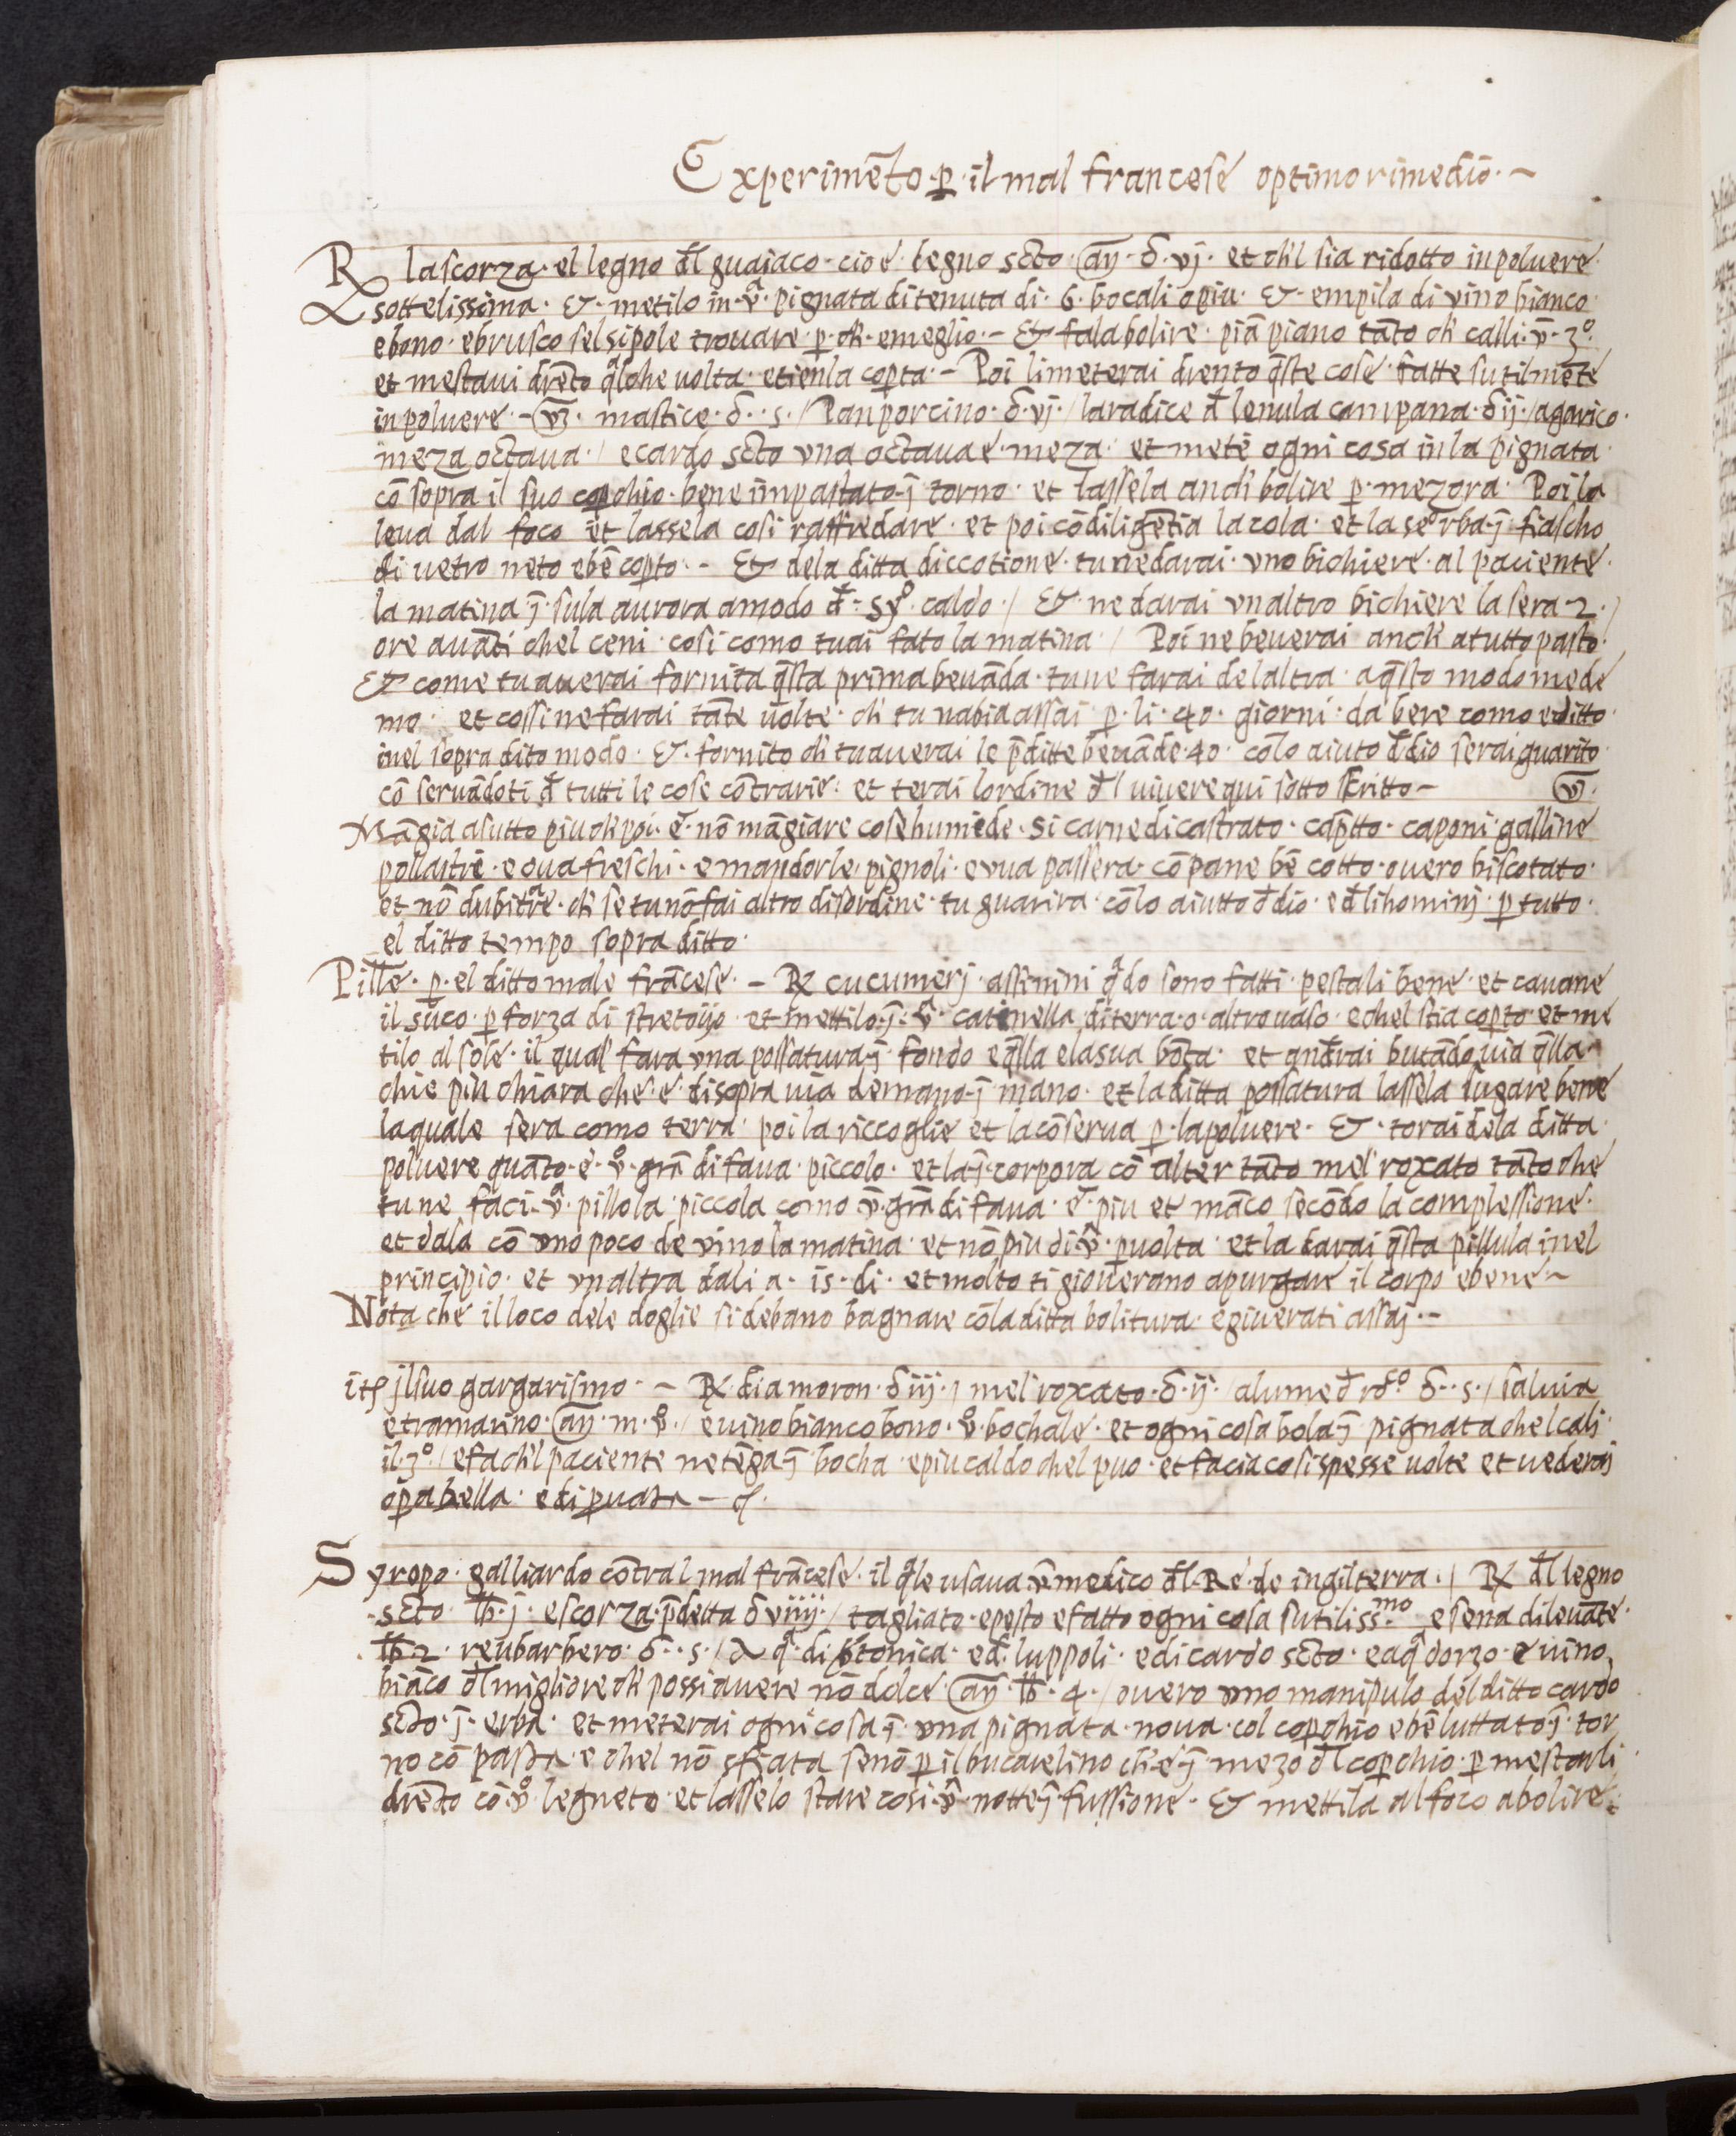 Experimēto ꝑ il mal francese optimo rimedio
℞ la scorza el legno đl guaiaco cioe legno scto añ ℥ vj et chl sia ridotto in poluere
sottelissima & metilo in vᵃ pignata di tenuta di 6 bocali o piu & empila di vino bianco
e bono e brusco sel si pole trouare ꝑ ch e meglio & fala bolire piā piano tāto ch calli ṽ 3º
et mestaui drēto qlche uolta e tienla coꝑta Poi li meterai drento q̄ste cose fatte sutilmēte
in poluere mastice ℥ s / Pan porcino ℥ vj / la radice đ lenula campana ℥ ij / agarico
meza octaua / e cardo scto vna octaua e meza et mete ogni cosa in la pignata
cō sopra il suo coꝑchio bene impastato ī torno et lassela anch bolire ꝑ mezora Poi la
leua dal foco et lassela cosi raffredare et poi cō diligētia la cola et la serba ī fiascho
di uetro neto e bē coꝑto & dela ditta diccotione tu ne darai vno bichiere al paciente
la matina ī sula aurora a modo đ syº caldo / & ne darai vnaltro bichiere la sera 2
ore auāti chel ceni cosi como tu ai fato la matina / Poi ne beuerai anch a tutto pasto
& come tu auerai fornita q̄sta prima beuāda tu ne farai delaltra a q̄sto modo mede
mo et cossi ne farai tāte uolte ch tu nabia assai ꝑ li 40 giorni da bere como e ditto
inel sopra dito modo & fornito ch tu auerai le p̄ditte beuāde 40 cōlo aiuto đ dio serai guarito
cō seruādoti đ tutti le cose cōtrarie et terai lordine đl viuere qui sotto scritto
Māgia asutto piu ch poi e nō māgiare cose humide si carne di castrato cap̄tto caponi galline
pollastre e oua freschi e mandorle pignoli e vua passera cō pane bē cotto ouero biscotato
et nō dubitare ch se tu nō fai altro disordine tu guarira cōlo aiutto đ dio e đ li hominj ꝑ tutto
el ditto tempo sopra ditto
Pille ꝑ el ditto male frācese ℞ cucumerj assinini qᵃdo sono fatti pestali bene et cauane
il suco ꝑ forza di stretoijo et mettilo ī vᵃ catinella di terra o altro uaso e chel stia coꝑto et me
tilo al sole il qual fara vna possatura ī fondo e q̄lla e la sua bōta et andrai butādo uia q̄lla
chie piu chiara che e disopra uia demano ī mano et la ditta possatura lassela sugare bene
la quale sera como terra poi la riccoglie et la cōserua ꝑ la poluere & torai dela ditta
poluere quāto e vº grā di faua piccolo et la ī corpora cō alter tāto mel roxato tāto che
tu ne faci vᵃ pillola piccola como ṽ grā di faua e piu et māco secōdo la complessione
et dala cō vno poco de vino la matina et nō piu di vᵃ ꝑ uolta et la darai q̄sta pillula inel
principio et vnaltra dali a 15 di et molto ti giouerano a purgare il corpo e bene
Nota che il loco dele doglie si debano bagnare cōla ditta bolitura e giuerati assaj
itē jl suo gargarismo ℞ diamoron ℥ iij / mel roxato ℥ ij / alume đ roº ℥ s / saluia
e tramarino añ m vº / e uino bianco bono vº bochale et ogni cosa bola ī pignata chel cali
il 3º / e fa chl paciente ne tēga ī bocha e piu caldo chel puo et facia cosi spesse uolte et uederaj
oꝑa bella e di ꝓuata
Syropo galliardo cōtra l mal frācese il qᵃle usaua ṽ medico đl Re de ingilterra / ℞ đl legno
scto ℔ j e scorza p̄detta ℥ viiij / tagliato e pesto e fatto ogni cosa sutilissᵐᵒ e sena di leuāte
℔ 2 reubarbero ℥ s / aqᵃ di btonica e đ luppoli e di cardo scto e aqᵃ dorzo e uino
biāco đl migliore ch possi auere nō dolce añ ℔ 4 / ouero vno manipulo del ditto cardo
scto ī erba et meterai ogni cosa ī vna pignata noua col coꝑchio e bē luttato ī tor
no cō pasta e chel nō sfiata senō ꝑ il bucarelino ch e ī mezo đl coꝑchio ꝑ mestarli
drēto cō vº legneto et lasselo stare cosi vᵃ notte ī fussione & mettila al foco a bolire